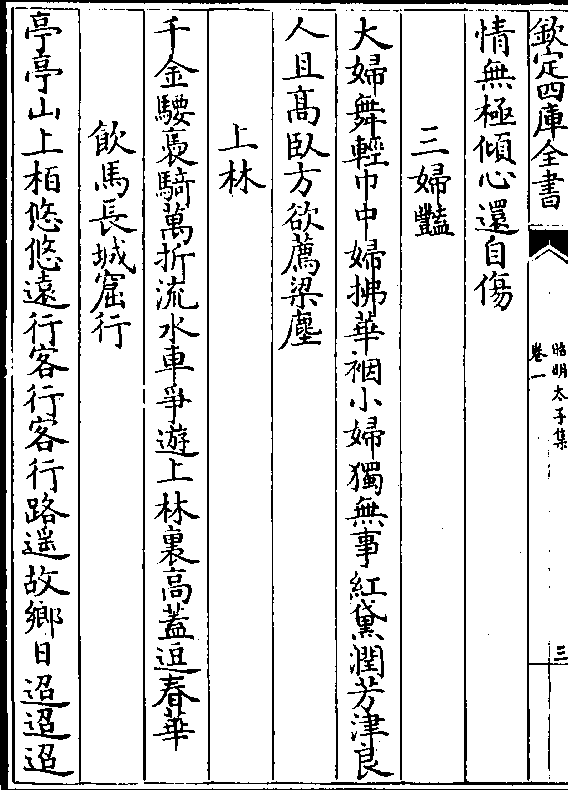 欽定四庫全書
昭明太子集
卷一
三
情無極傾心還自傷
三婦豔
大婦舞輕巾中婦拂華裀小婦獨無事紅黛潤芳津良
人且髙臥方欲薦梁塵
上林
千金騕褭騎萬折流水車爭遊上林裏高蓋逗春華
飲馬長城窟行
亭亭山上柏悠悠遠行客行客行路遥故鄉日迢迢迢